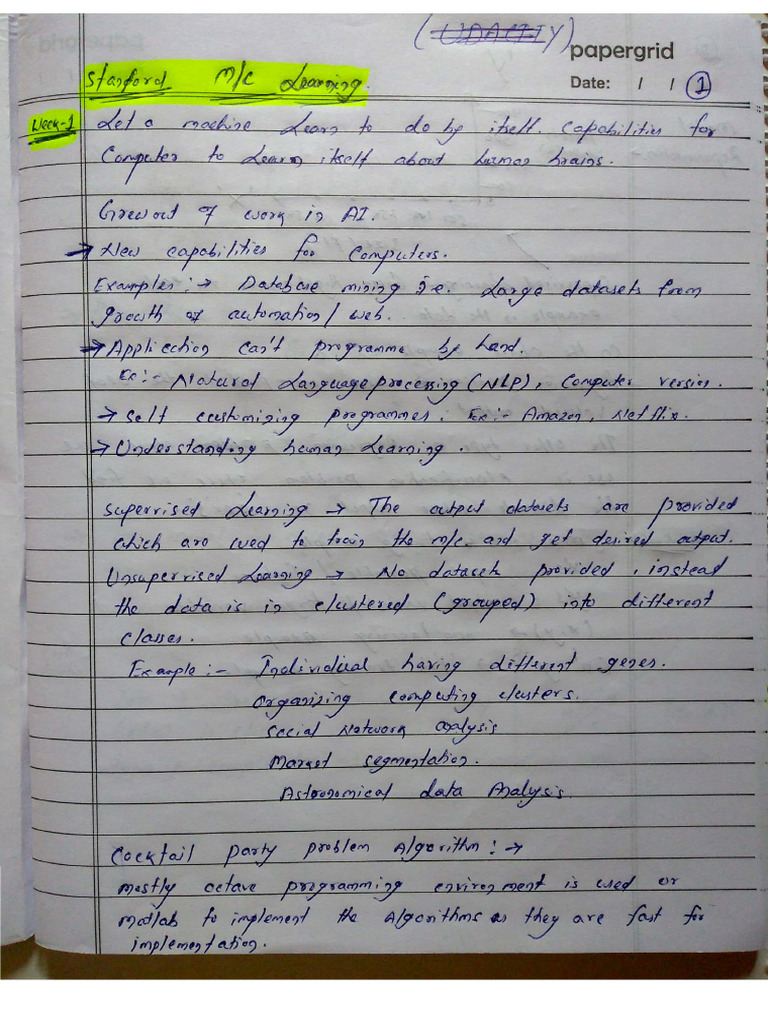 (UDACITY)
papergrid
Date: / / 1
Stanford M/c Learning.
Week-1 Let a machine learn to do by itself. capabilities for
Computer to Learn itself about human brains.
Grewout of work in AI.
→ New capabilities for Computers.
Examples:→ Database mining i.e. Large datasets from
growth of automation/web.
→ Application can't programme by hand.
Ex:- Natural Language processing (NLP), Computer version.
→ Self customizing programmes. Ex:- Amazon, Netflix.
→ Understanding human Learning.
Supervised Learning → The output datasets are provided
which are used to train the m/c. and get desired output.
Unsupervised Learning → No datasets provided, instead
the data is in clustered (grouped) into different
classes.
Example:- Individual having different genes.
Organizing computing clusters.
Social Network analysis
Market segmentation.
Astronomical data Analysis.
Cocktail party problem Algorithm:→
mostly octave programming environment is used or
matlab to implement the Algorithms as they are fast for
implementation.